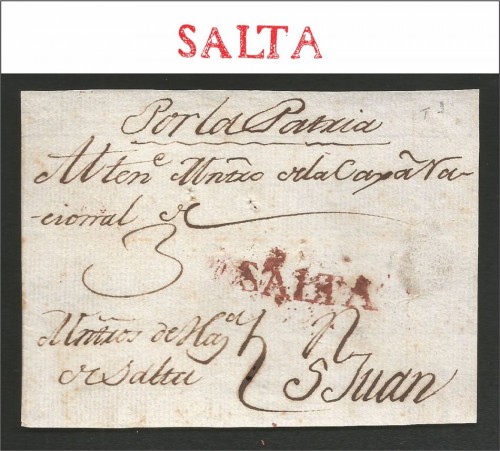 SALTA
Por la Patria
Al ten.e Mntro de la Caxa Na-
cional de
3
SALTA
Mntros de Haz.da
de Salta
S Juan